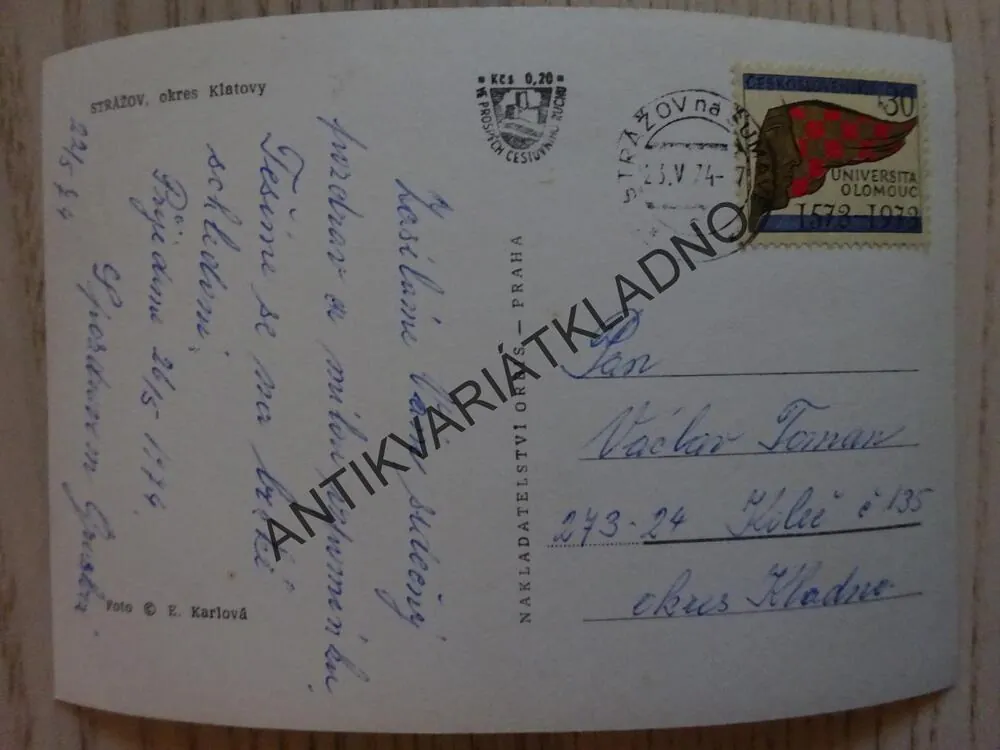 STRÁŽOV, okres Klatovy
Kčs 0,20
VE PROSPĚCH CESTOVNÍHO RUCHU
STRÁŽOV na ŠUMAVĚ
23.V.74-7
ČESKOSLOVENSKO
30
UNIVERSITA
OLOMOUC
1573-1973
Zasíláme Vám srdečný
pozdrav a milou vzpomínku.
Těšíme se na brzké
shledání.
Přijedeme 26/5 1974.
S pozdravem
22/5 74
Foto © E. Karlová
NAKLADATELSTVÍ ORBIS — PRAHA
Pan
Václav Toman
273-24 č 135
okres Kladno
ANTIKVARIÁTKLADNO